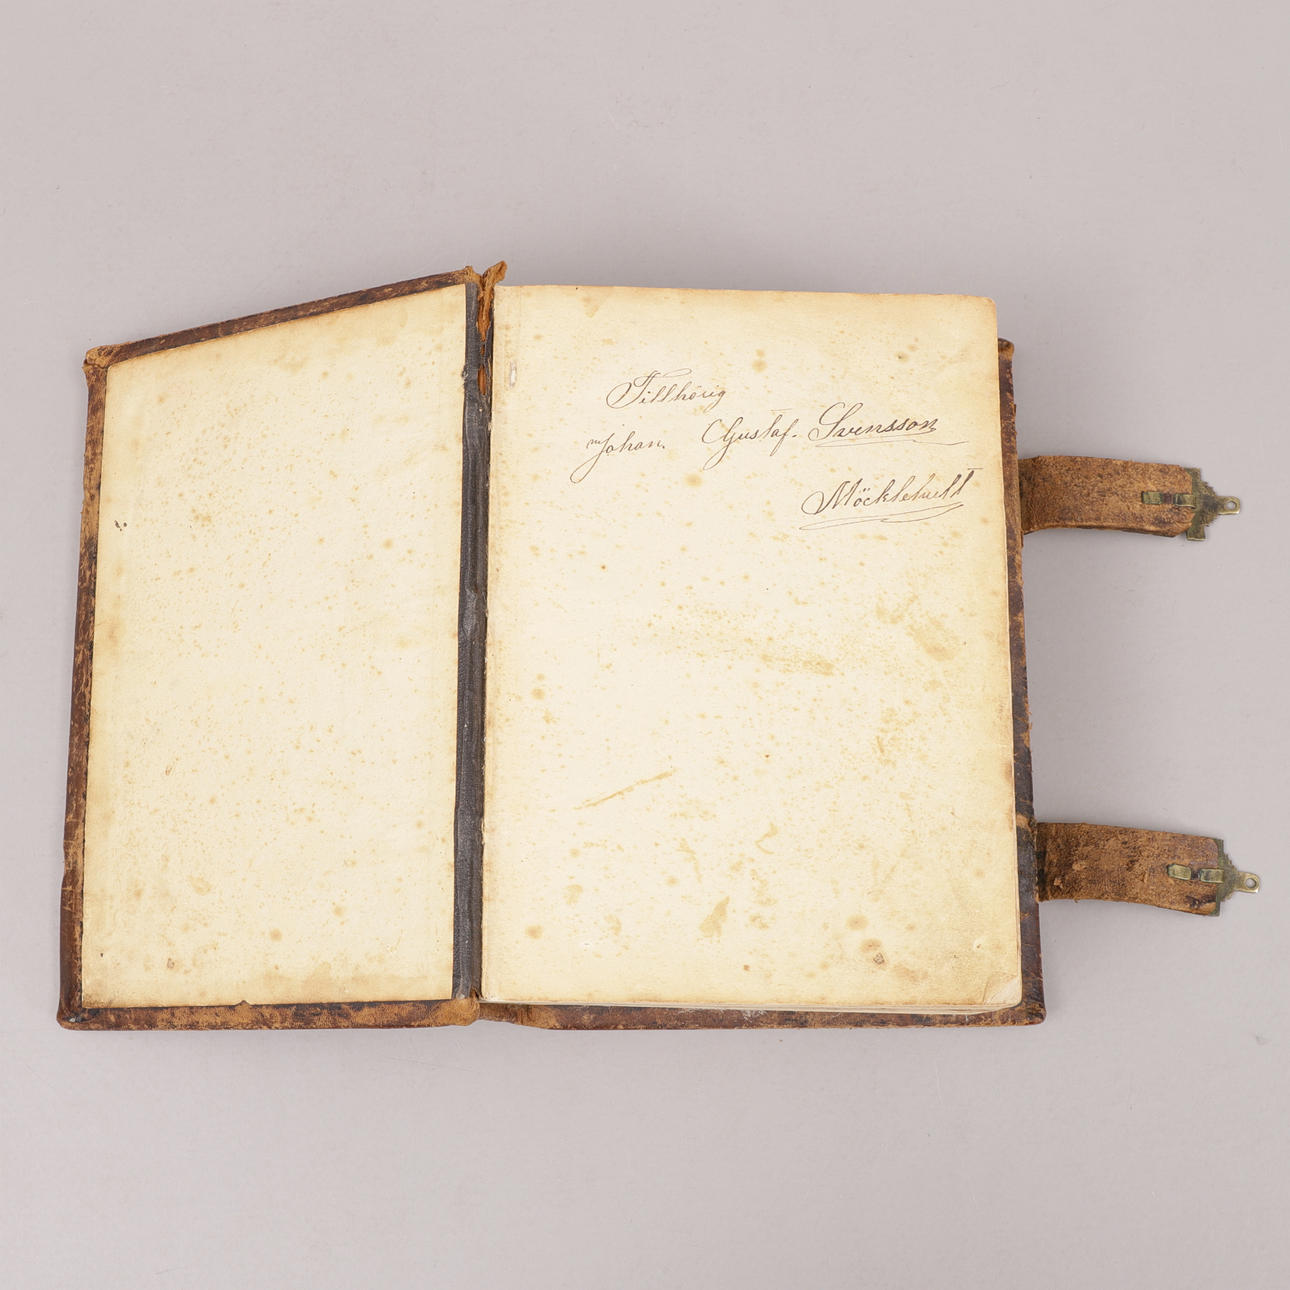 Tillhörig
Johan Gustaf. Svensson
Möcklehult